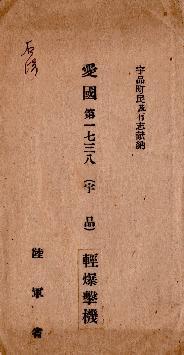 宇品町民及有志献納
愛國第一七三八(宇品)
輕爆擊機
陸軍省